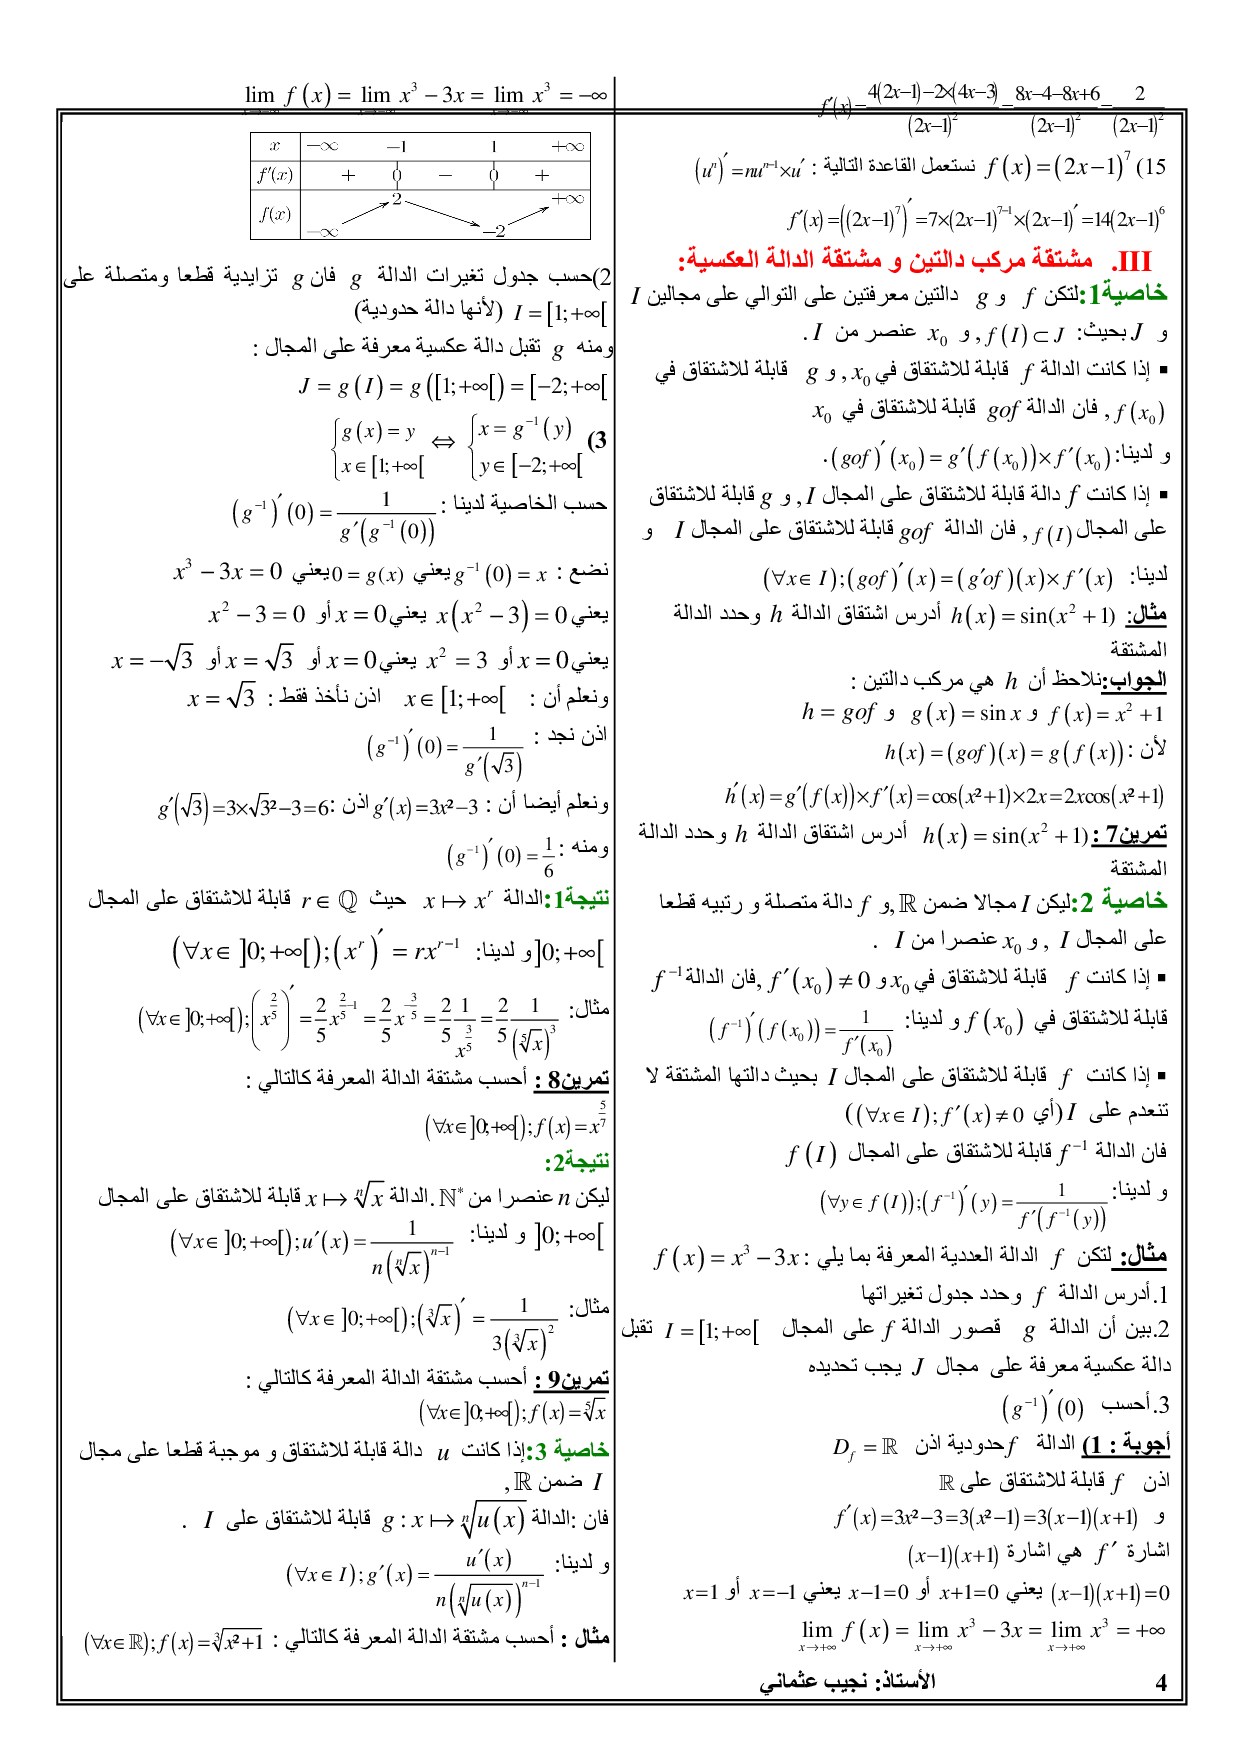 f′(x) = 4(2x−1)−2×(4x−3) / (2x−1)² = 8x−4−8x+6 / (2x−1)² = 2 / (2x−1)²
15) f(x) = (2x−1)⁷ نستعمل القاعدة التالية : (uⁿ)′ = nuⁿ⁻¹×u′
f′(x) = ((2x−1)⁷)′ = 7×(2x−1)⁷⁻¹×(2x−1)′ = 14(2x−1)⁶
III. مشتقة مركب دالتين و مشتقة الدالة العكسية:
خاصية1:لتكن f و g دالتين معرفتين على التوالي على مجالين I
و J بحيث: f(I) ⊂ J , و x₀ عنصر من I .
▪ إذا كانت الدالة f قابلة للاشتقاق في x₀ , و g قابلة للاشتقاق في
f(x₀) , فان الدالة gof قابلة للاشتقاق في x₀
و لدينا: (gof)′(x₀) = g′(f(x₀))×f′(x₀) .
▪ إذا كانت f دالة قابلة للاشتقاق على المجال I , و g قابلة للاشتقاق
على المجال f(I) , فان الدالة gof قابلة للاشتقاق على المجال I و
لدينا: (∀x∈I);(gof)′(x) = (g′of)(x)×f′(x)
مثال: h(x) = sin(x²+1) أدرس اشتقاق الدالة h وحدد الدالة
المشتقة
الجواب:نلاحظ أن h هي مركب دالتين :
f(x) = x²+1 و g(x) = sin x و h = gof
لأن : h(x) = (gof)(x) = g(f(x))
h′(x) = g′(f(x))×f′(x) = cos(x²+1)×2x = 2xcos(x²+1)
تمرين7 : h(x) = sin(x²+1) أدرس اشتقاق الدالة h وحدد الدالة
المشتقة
خاصية 2:ليكن I مجالا ضمن ℝ ,و f دالة متصلة و رتيبه قطعا
على المجال I , و x₀ عنصرا من I .
▪ إذا كانت f قابلة للاشتقاق في x₀ و f′(x₀) ≠ 0 ,فان الدالة f⁻¹
قابلة للاشتقاق في f(x₀) و لدينا: (f⁻¹)′(f(x₀)) = 1 / f′(x₀)
▪ إذا كانت f قابلة للاشتقاق على المجال I بحيث دالتها المشتقة لا
تنعدم على I (أي (∀x∈I);f′(x)≠0))
فان الدالة f⁻¹ قابلة للاشتقاق على المجال f(I)
و لدينا: (∀y∈f(I));(f⁻¹)′(y) = 1 / f′(f⁻¹(y))
مثال: لتكن f الدالة العددية المعرفة بما يلي : f(x) = x³−3x
1.أدرس الدالة f وحدد جدول تغيراتها
2.بين أن الدالة g قصور الدالة f على المجال I = [1;+∞[ تقبل
دالة عكسية معرفة على مجال J يجب تحديده
3.أحسب (g⁻¹)′(0)
أجوبة : 1) الدالة f حدودية اذن D_f = ℝ
اذن f قابلة للاشتقاق على ℝ
و f′(x) = 3x²−3 = 3(x²−1) = 3(x−1)(x+1)
اشارة f′ هي اشارة (x−1)(x+1)
(x−1)(x+1)=0 يعني x+1=0 أو x−1=0 يعني x=−1 أو x=1
lim x→+∞ f(x) = lim x→+∞ x³−3x = lim x→+∞ x³ = +∞
lim f(x) = lim x³−3x = lim x³ = −∞
x −∞ −1 1 +∞
f′(x) + 0 − 0 +
f(x) −∞ 2 −2 +∞
2)حسب جدول تغيرات الدالة g فان g تزايدية قطعا ومتصلة على
I = [1;+∞[ (لأنها دالة حدودية)
ومنه g تقبل دالة عكسية معرفة على المجال :
J = g(I) = g([1;+∞[) = [−2;+∞[
3) { g(x) = y ; x∈[1;+∞[ ⇔ { x = g⁻¹(y) ; y∈[−2;+∞[
حسب الخاصية لدينا : (g⁻¹)′(0) = 1 / g′(g⁻¹(0))
نضع : g⁻¹(0) = x يعني 0 = g(x) يعني x³−3x = 0
يعني x(x²−3) = 0 يعني x = 0 أو x²−3 = 0
يعني x = 0 أو x² = 3 يعني x = 0 أو x = √3 أو x = −√3
ونعلم أن : x∈[1;+∞[ اذن نأخذ فقط : x = √3
اذن نجد : (g⁻¹)′(0) = 1 / g′(√3)
ونعلم أيضا أن : g′(x)=3x²−3 اذن : g′(√3)=3×√3²−3=6
ومنه : (g⁻¹)′(0) = 1/6
نتيجة1:الدالة x ↦ xʳ حيث r∈ℚ قابلة للاشتقاق على المجال
]0;+∞[ و لدينا: (∀x∈]0;+∞[);(xʳ)′ = rxʳ⁻¹
مثال: (∀x∈]0;+∞[);(x^(2/5))′ = 2/5 x^(2/5−1) = 2/5 x^(−3/5) = 2/5 1/x^(3/5) = 2/5 1/(⁵√x)³
تمرين8 : أحسب مشتقة الدالة المعرفة كالتالي :
(∀x∈]0;+∞[);f(x) = x^(5/7)
نتيجة2:
ليكن n عنصرا من ℕ* .الدالة x ↦ ⁿ√x قابلة للاشتقاق على المجال
]0;+∞[ و لدينا: (∀x∈]0;+∞[);u′(x) = 1 / n(ⁿ√x)ⁿ⁻¹
مثال: (∀x∈]0;+∞[);(³√x)′ = 1 / 3(³√x)²
تمرين9 : أحسب مشتقة الدالة المعرفة كالتالي :
(∀x∈]0;+∞[);f(x) = ⁵√x
خاصية 3:إذا كانت u دالة قابلة للاشتقاق و موجبة قطعا على مجال
I ضمن ℝ ,
فان :الدالة g : x ↦ ⁿ√u(x) قابلة للاشتقاق على I .
و لدينا: (∀x∈I);g′(x) = u′(x) / n(ⁿ√u(x))ⁿ⁻¹
مثال : أحسب مشتقة الدالة المعرفة كالتالي : (∀x∈ℝ);f(x) = ³√x²+1
الأستاذ: نجيب عثماني 4